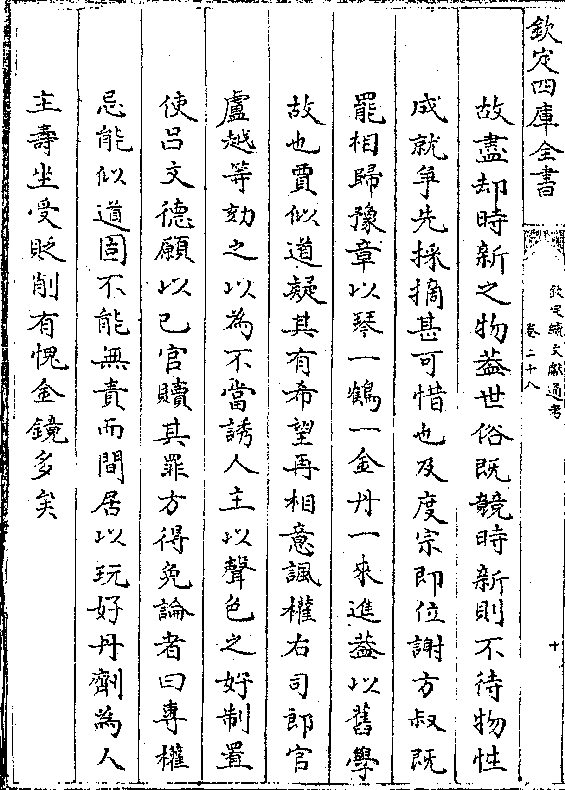 欽定四庫全書
欽定續文獻通考
卷二十八
十
故盡却時新之物葢世俗既競時新則不待物性
成就爭先採摘甚可惜也及度宗即位謝方叔既
罷相歸豫章以琴一鶴一金丹一來進葢以舊學
故也賈似道疑其有希望再相意諷權右司郎官
盧越等劾之以為不當誘人主以聲色之好制置
使吕文德願以已官贖其罪方得免論者曰專權
忌能似道固不能無責而間居以玩好丹劑為人
主壽坐受貶削有愧金鏡多矣